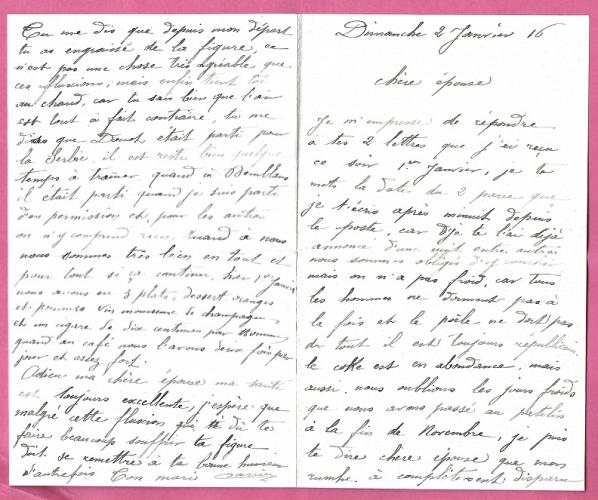 Dimanche 2 Janvier 16
chère épouse
Je m'empresse de répondre
a tes 2 lettres que j'ai reçu
ce soir 1er Janvier, je te
mets la date du 2 parce que
je t'écris après minuit depuis
le poste, car je te l'ai déjà
annoncé d'une nuit entre autre
nous sommes obligés d'y coucher
mais on n'a pas froid, car tous
les hommes ne dorment pas à
la fois et le poêle ne dort pas
du tout il est toujours
le coke est en abondance, mais
aussi nous oublions les jours froids
que nous avons passé au
à la fin de Novembre, je puis
te dire chère épouse que mon
rumhe à complètement disparu
Tu me dis que depuis mon départ
tu as engraissé de la figure, ce
n'est pas une chose très agréable que
ces fluxions, mais enfin tient toi
au chaud, car tu sais bien que l'air
est tout à fait contraire, tu me
disas que était parti pour
la Serbie, il est resté bien quelque
temps à trainer quand à
il était parti quand je suis parti
d'en permission et pour les autres
on n'y comprend rien Quand à nous
nous sommes très bien en tout et
pour tout si ça continue, hier 1er Janvier
nous avons eu 3 plats, dessert oranges
et pommes vin mousseux de champagne
et un cigare de dix centimes par homme
quand au café nous l'avons deux fois par
jour et assez fort.
Adieu ma chère épouse ma santé
est toujours excellente, j'espère que
malgré cette fluxion qui a dû te
faire beaucoup souffrir ta figure
doit se remettre à ta bonne humeur
d'autrefois Ton mari